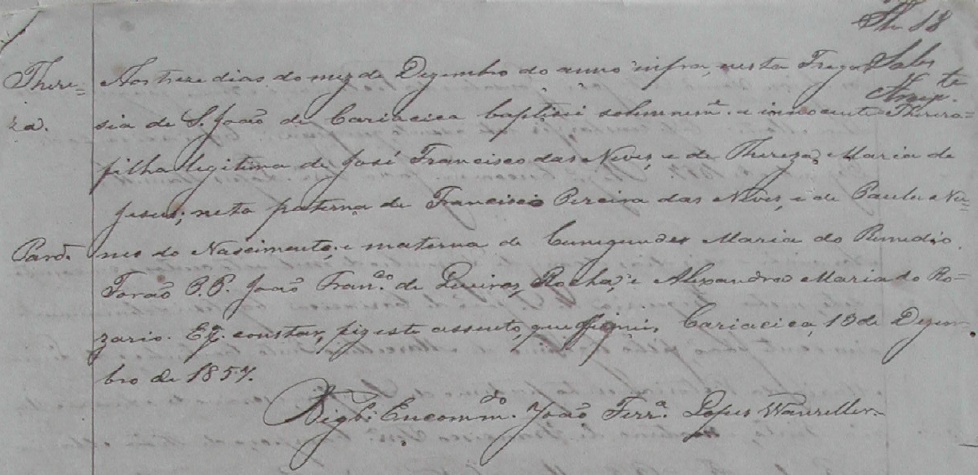 Fls 18
Sales
There=
za.
Aos treze dias do mez de Dezembro do anno infra, nesta Fregue
sia de S. João de Cariacica baptisei solemnem.e a innocente Thereza=
filha legitima de José Francisco das Neves, e de Thereza Maria de
Jesus; neta paterna de Francisco Pereira das Neves, e de Paula Nu=
Pard.
nes do Nascimento; e materna de Cunegundes Maria do Remedio.
Forão P.P. João Fran.co de Queiros Rocha, e Alexandra Maria do Ro=
zario. E p.a constar, fiz este assento, que assignei. Cariacica, 13 de Dezem=
bro de 1857.
O Vigr.o Encomm.do João Ferr.a Lopes Wanzeller=